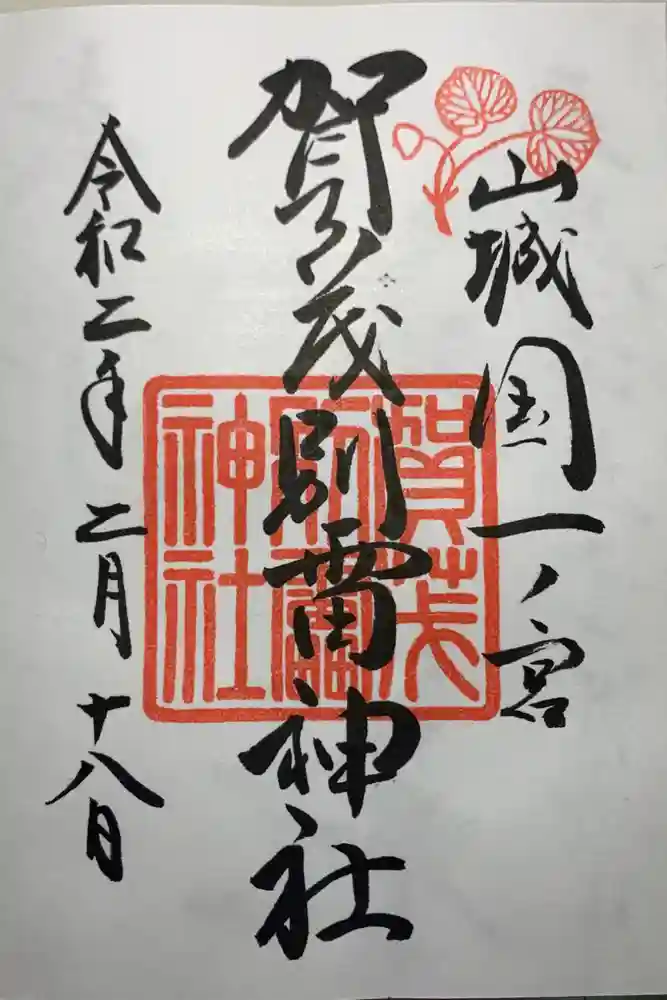 山城国一ノ宮
賀茂別雷神社
賀茂
別雷
神社
令和二年二月十八日